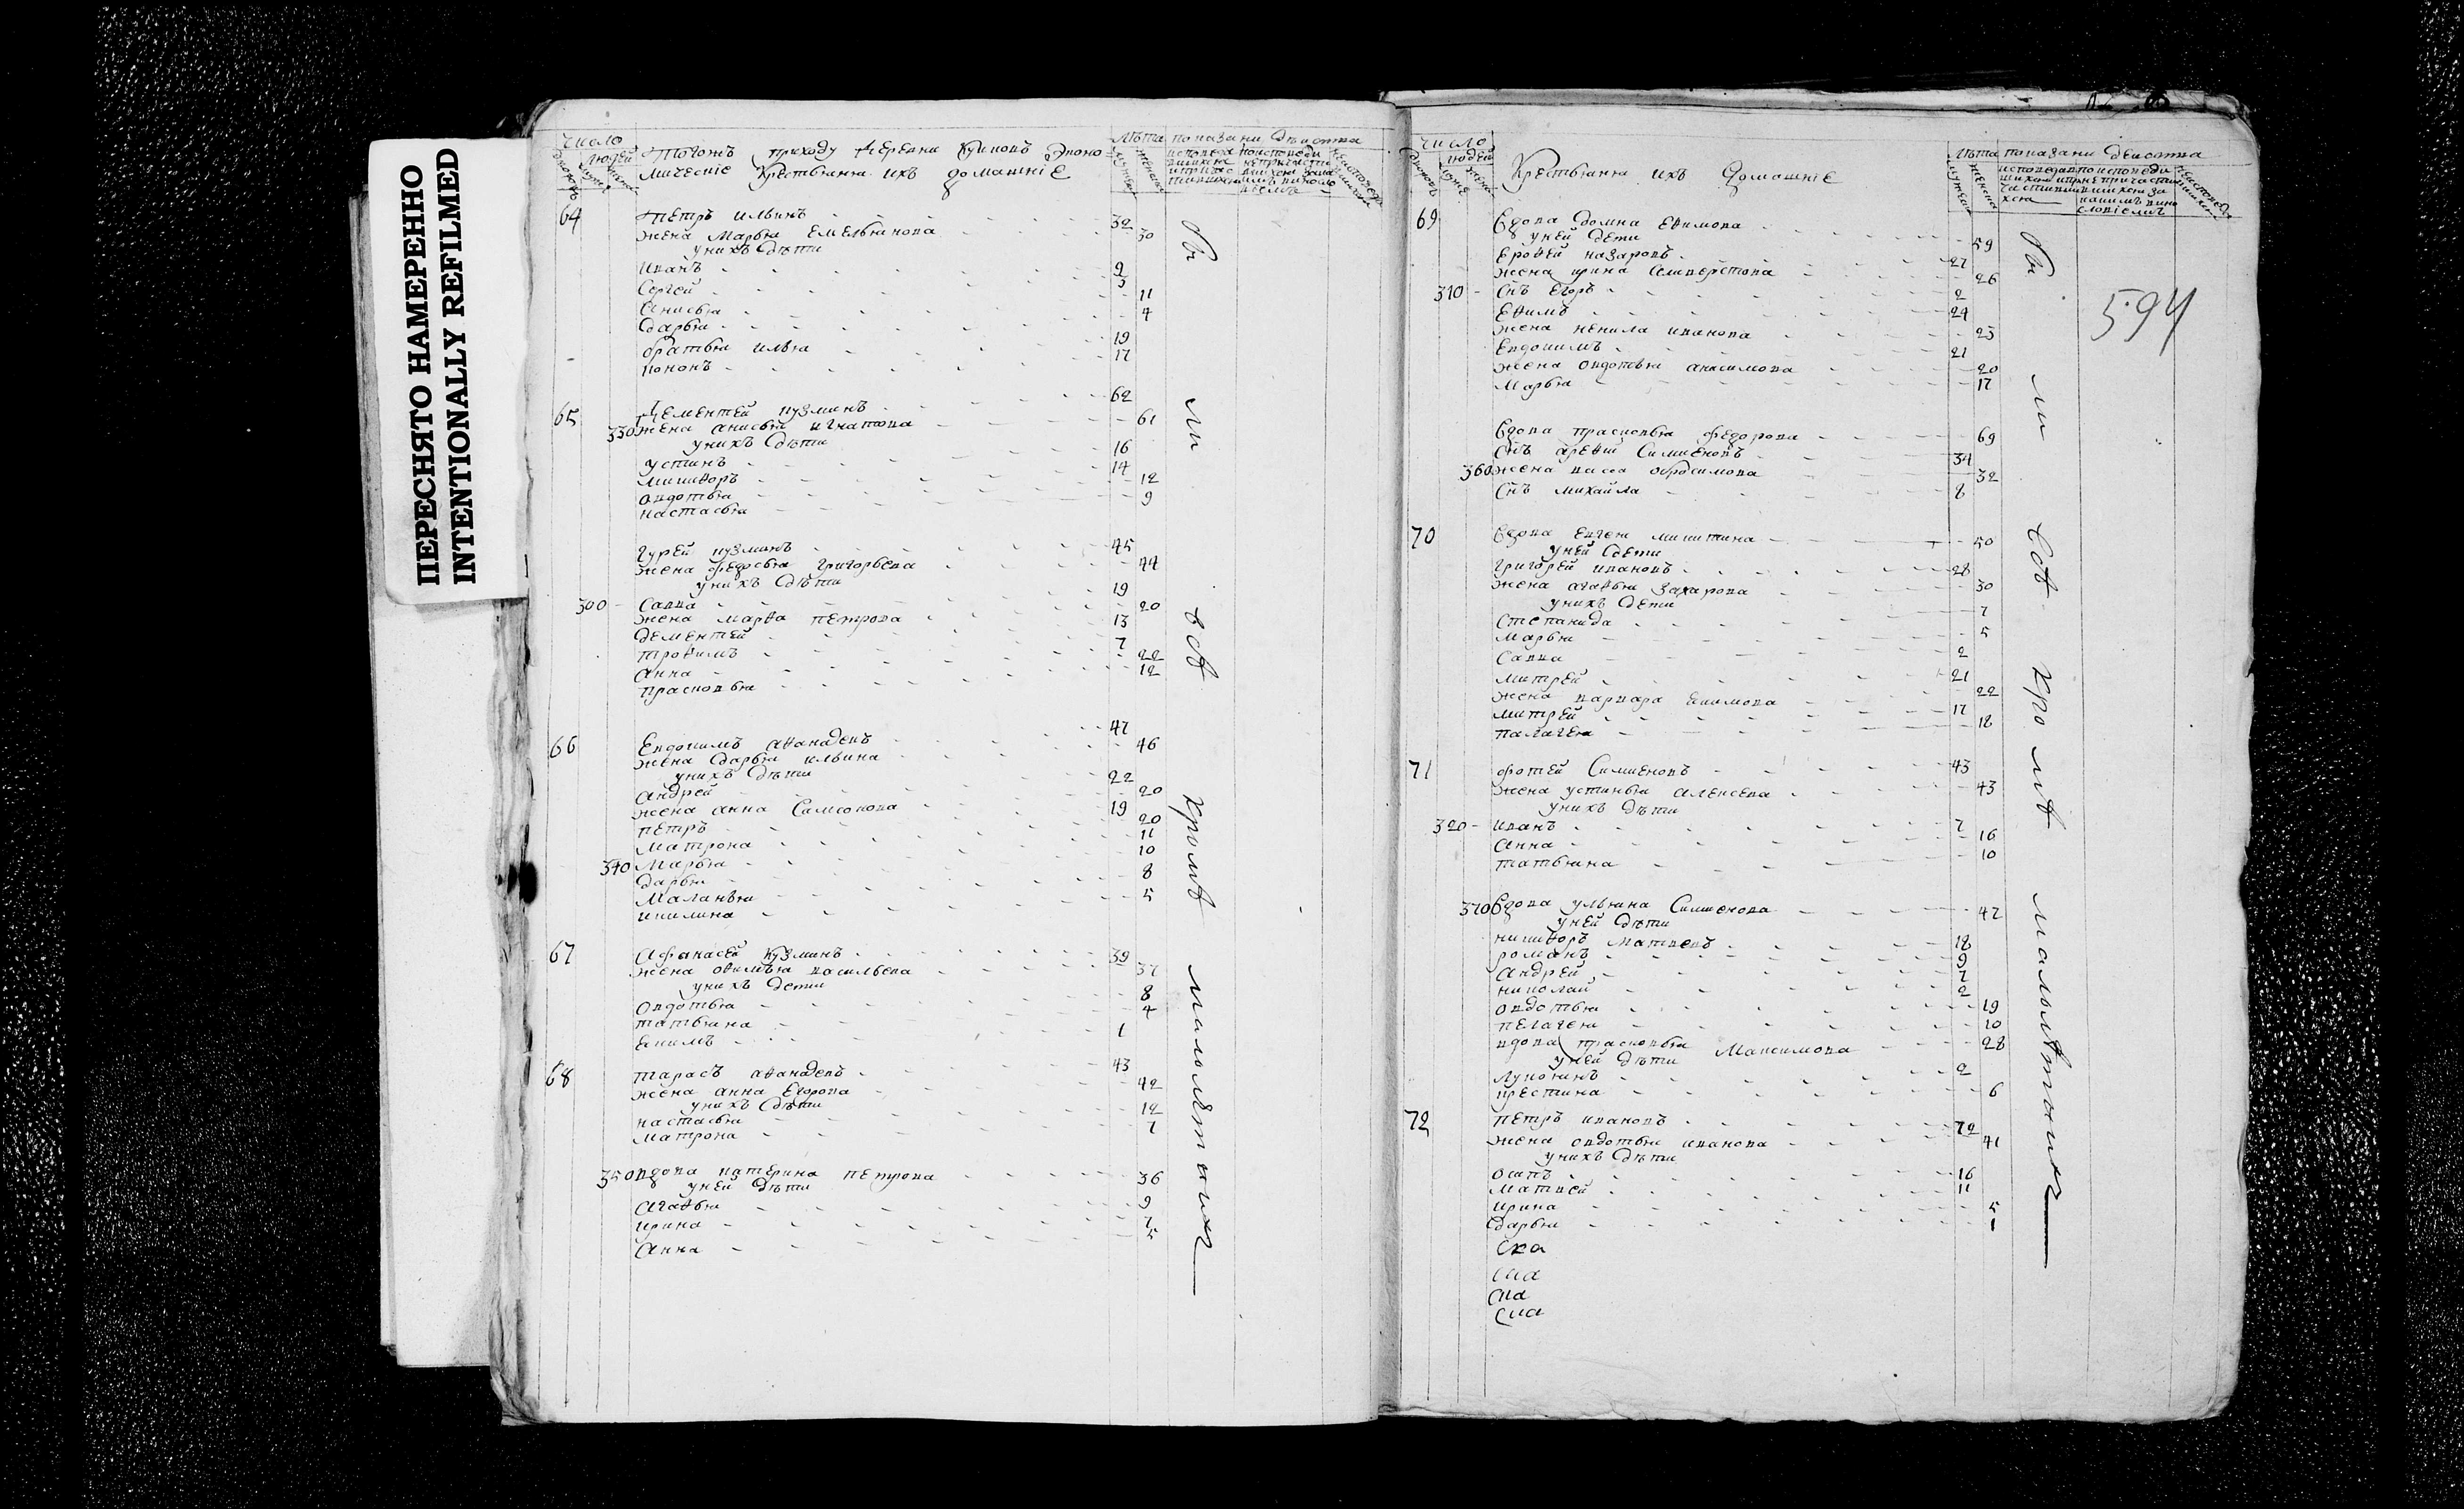 ПЕРЕСНЯТО НАМЕРЕННО
INTENTIONALLY REFILMED
число
людей
Тогожъ приходу деревни эконо
мическіе Крестьяня ихъ домашніе
лѣта показани дѣиства
64 Петръ ильинъ 32
жена Марья Емельянова 30
унихъ дѣти
Иванъ 9
Сергей 3
Анисья 11
дарья 4
братья илья 19
кононъ 17
65 Дементей кузминъ 62
330 жена анисья игнатова 61
унихъ дѣти
устинъ 16
никиѳоръ 14
овдотья 12
настасья 9
гурей кузминъ 45
жена федосья григорьева 44
унихъ дѣти
300 Савва 19
жена марѳа петрова 20
дементей 13
троѳимъ 7
анна 22
прасковья 12
66 Евдокимъ аѳанасьевъ 47
жена дарья ильина 46
унихъ дѣти
андрей 22
жена анна Самсонова 20
петръ 19
матрона 20
340 Марья 11
дарья 10
Маланья 8
акилина 5
67 Афанасей кузминъ 39
жена оѳимья васильева 37
унихъ дети
овдотья 8
татьяна 4
Екимъ 1
68 тарасъ аѳанасьевъ 43
жена анна Егорова 42
унихъ дѣти
настасья 12
матрона 7
350 вдова катерина петрова 36
уней дѣти
агаѳья 9
ирина 7
анна 5
бы
ли
всѣ
кромѣ
малолѣтних
число
людей
Крестьяня ихъ домашніе
лѣта показани деиства
594
69 вдова домна Еѳимова 59
уней дети
Ероѳей назаровъ 27
жена ирина Селиверстова 26
310 снъ Егоръ 2
Еѳимъ 24
жена ненила иванова 23
Евдокимъ 21
жена овдотья анисимова 20
марья 17
вдова прасковья федорова 69
снъ ареѳий Симионовъ 34
360 жена васса обросимова 32
снъ михайла 8
70 вдова Евгея никитина 50
уней дети
григорей ивановъ 28
жена агаѳья захарова 30
унихъ дети
степанида 7
марья 5
Савва 2
митрей 21
жена варвара Екимова 22
митрей 17
палагея 18
71 фотей Симионовъ 43
жена устинья алексеева 43
унихъ дѣти
320 иванъ 7
анна 16
татьяна 10
370 вдова ульяна Симионова 47
уней дѣти
никиѳоръ матвеевъ 18
романъ 9
андрей 7
николай 2
овдотья 19
пелагея 10
вдова прасковья Максимова 28
уней дѣти
лукоянъ 2
крестина 6
72 петръ ивановъ 72
жена овдотья иванова 41
унихъ дѣти
осипъ 16
матвей 11
ирина 5
дарья 1
бы
ли
всѣ
кромѣ
малолѣтних